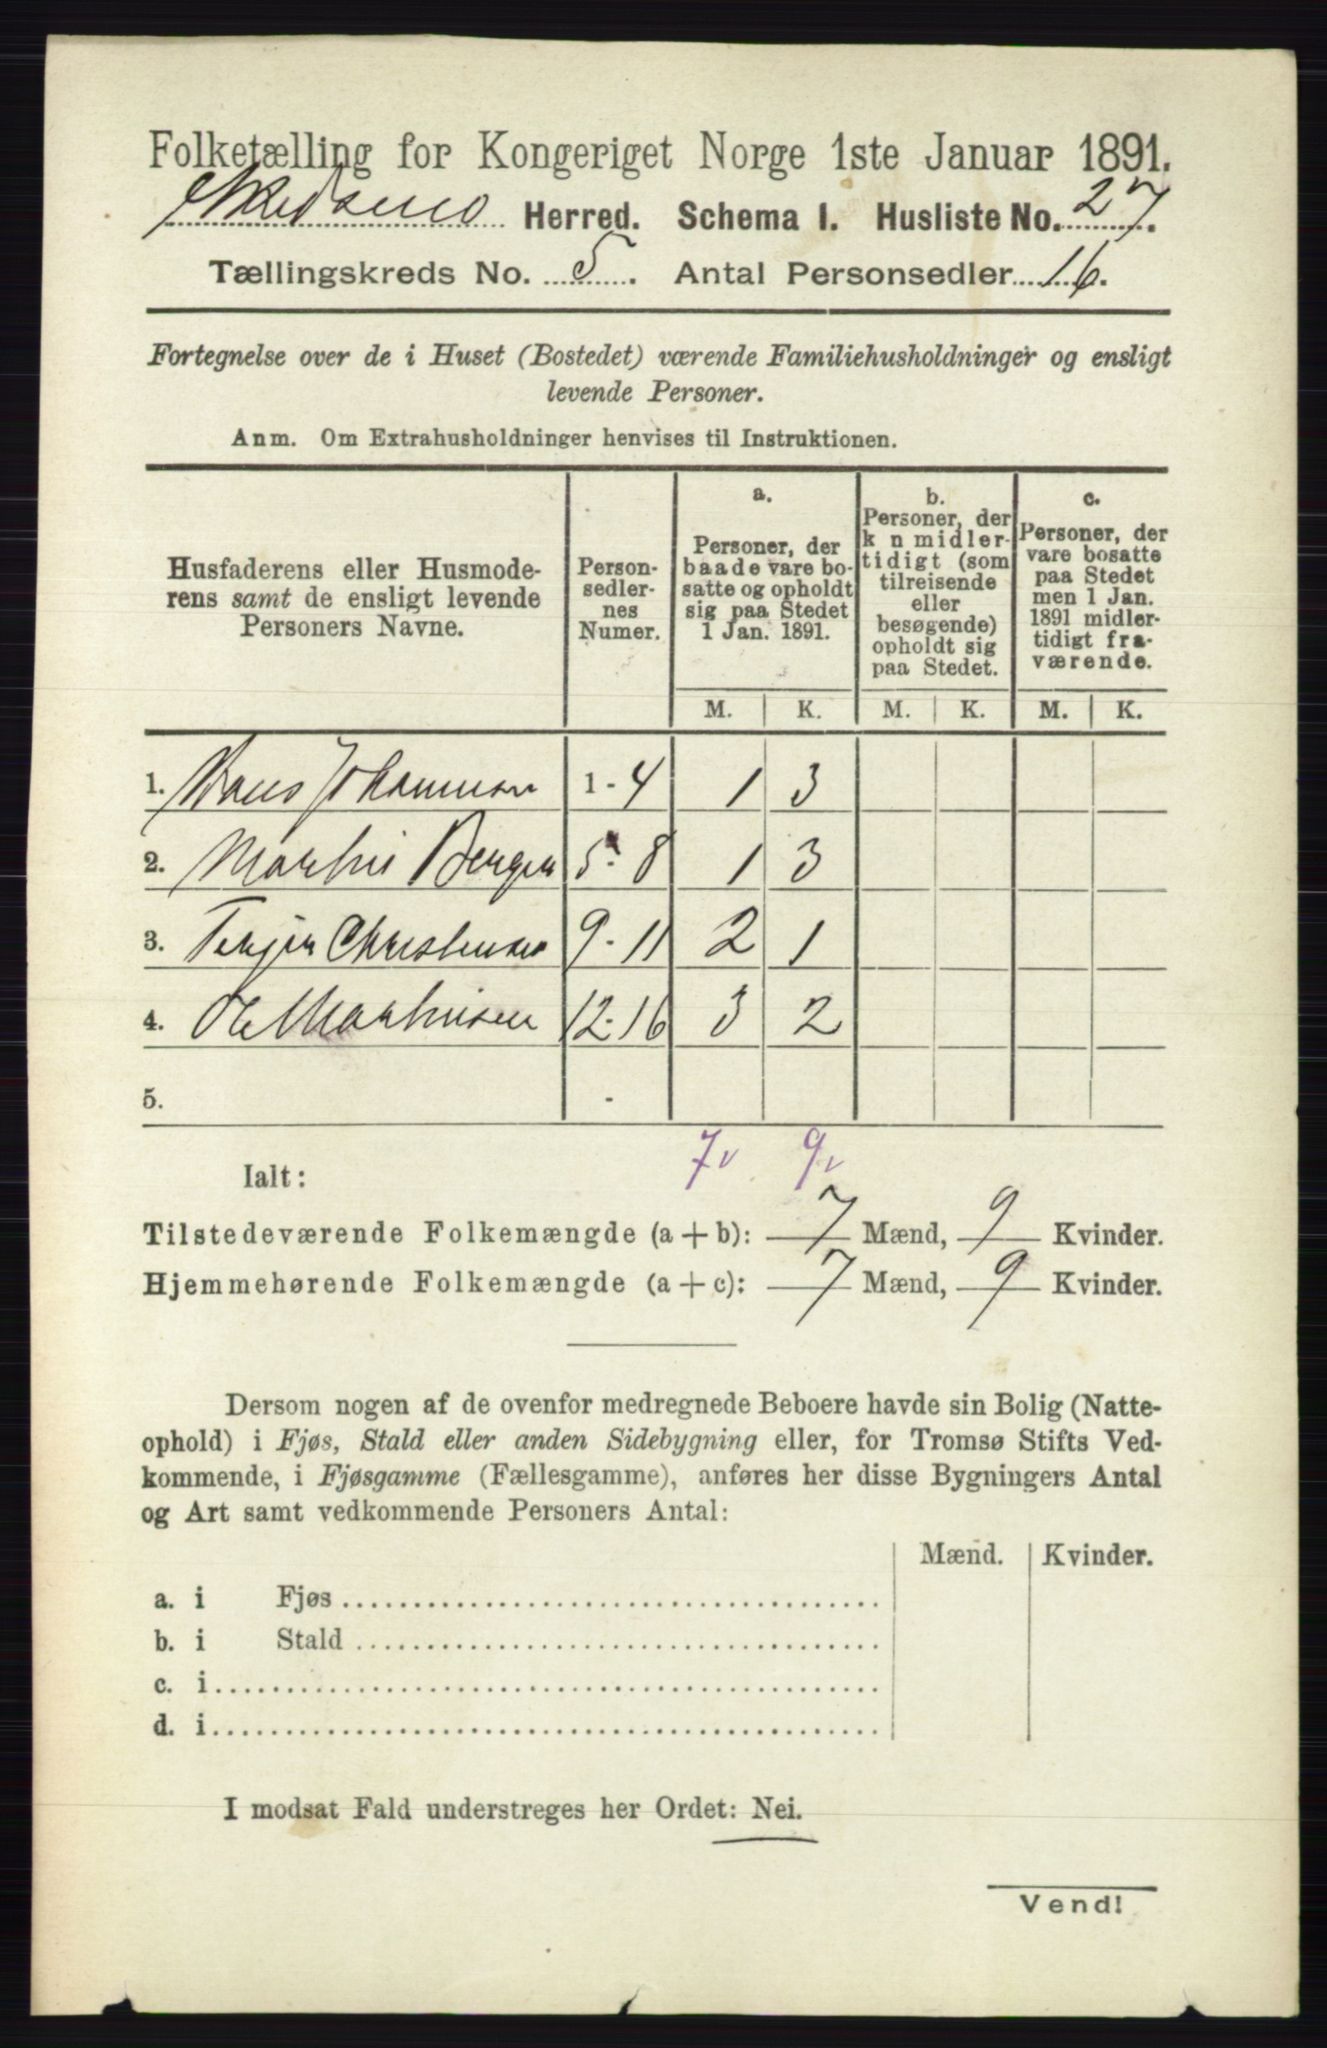 Folketælling for Kongeriget Norge 1ste Januar 1891.
Skedsmo Herred. Schema I. Husliste No. 27.
Tællingskreds No. 5. Antal Personsedler 16.
Fortegnelse over de i Huset (Bostedet) værende Familiehusholdninger og ensligt
levende Personer.
Anm. Om Extrahusholdninger henvises til Instruktionen.
Husfaderens eller Husmode-
rens samt de ensligt levende
Personers Navne.
Person-
sedler-
nes
Numer.
a.
Personer, der
baade vare bo-
satte og opholdt
sig paa Stedet
1 Jan. 1891.
b.
Personer, der
k n midler-
tidigt (som
tilreisende
eller
besøgende)
opholdt sig
paa Stedet.
c.
Personer, der
vare bosatte
paa Stedet
men 1 Jan.
1891 midler-
tidigt fra-
værende.
M. K. M. K. M. K.
1. Hans Johannesen 1-4 1 3
2. Marthin Berger 5-8 1 3
3. Terjer Christensen 9-11 2 1
4. Ole Marthinsen 12-16 3 2
5. -
7v 9v
Ialt:
Tilstedeværende Folkemængde (a + b): 7 Mænd, 9 Kvinder.
Hjemmehørende Folkemængde (a + c): 7 Mænd, 9 Kvinder.
Dersom nogen af de ovenfor medregnede Beboere havde sin Bolig (Natte-
ophold) i Fjøs, Stald eller anden Sidebygning eller, for Tromsø Stifts Ved-
kommende, i Fjøsgamme (Fællesgamme), anføres her disse Bygningers Antal
og Art samt vedkommende Personers Antal:
Mænd. Kvinder.
a. i Fjøs
b. i Stald
c. i
d. i
I modsat Fald understreges her Ordet: Nei.
Vend!